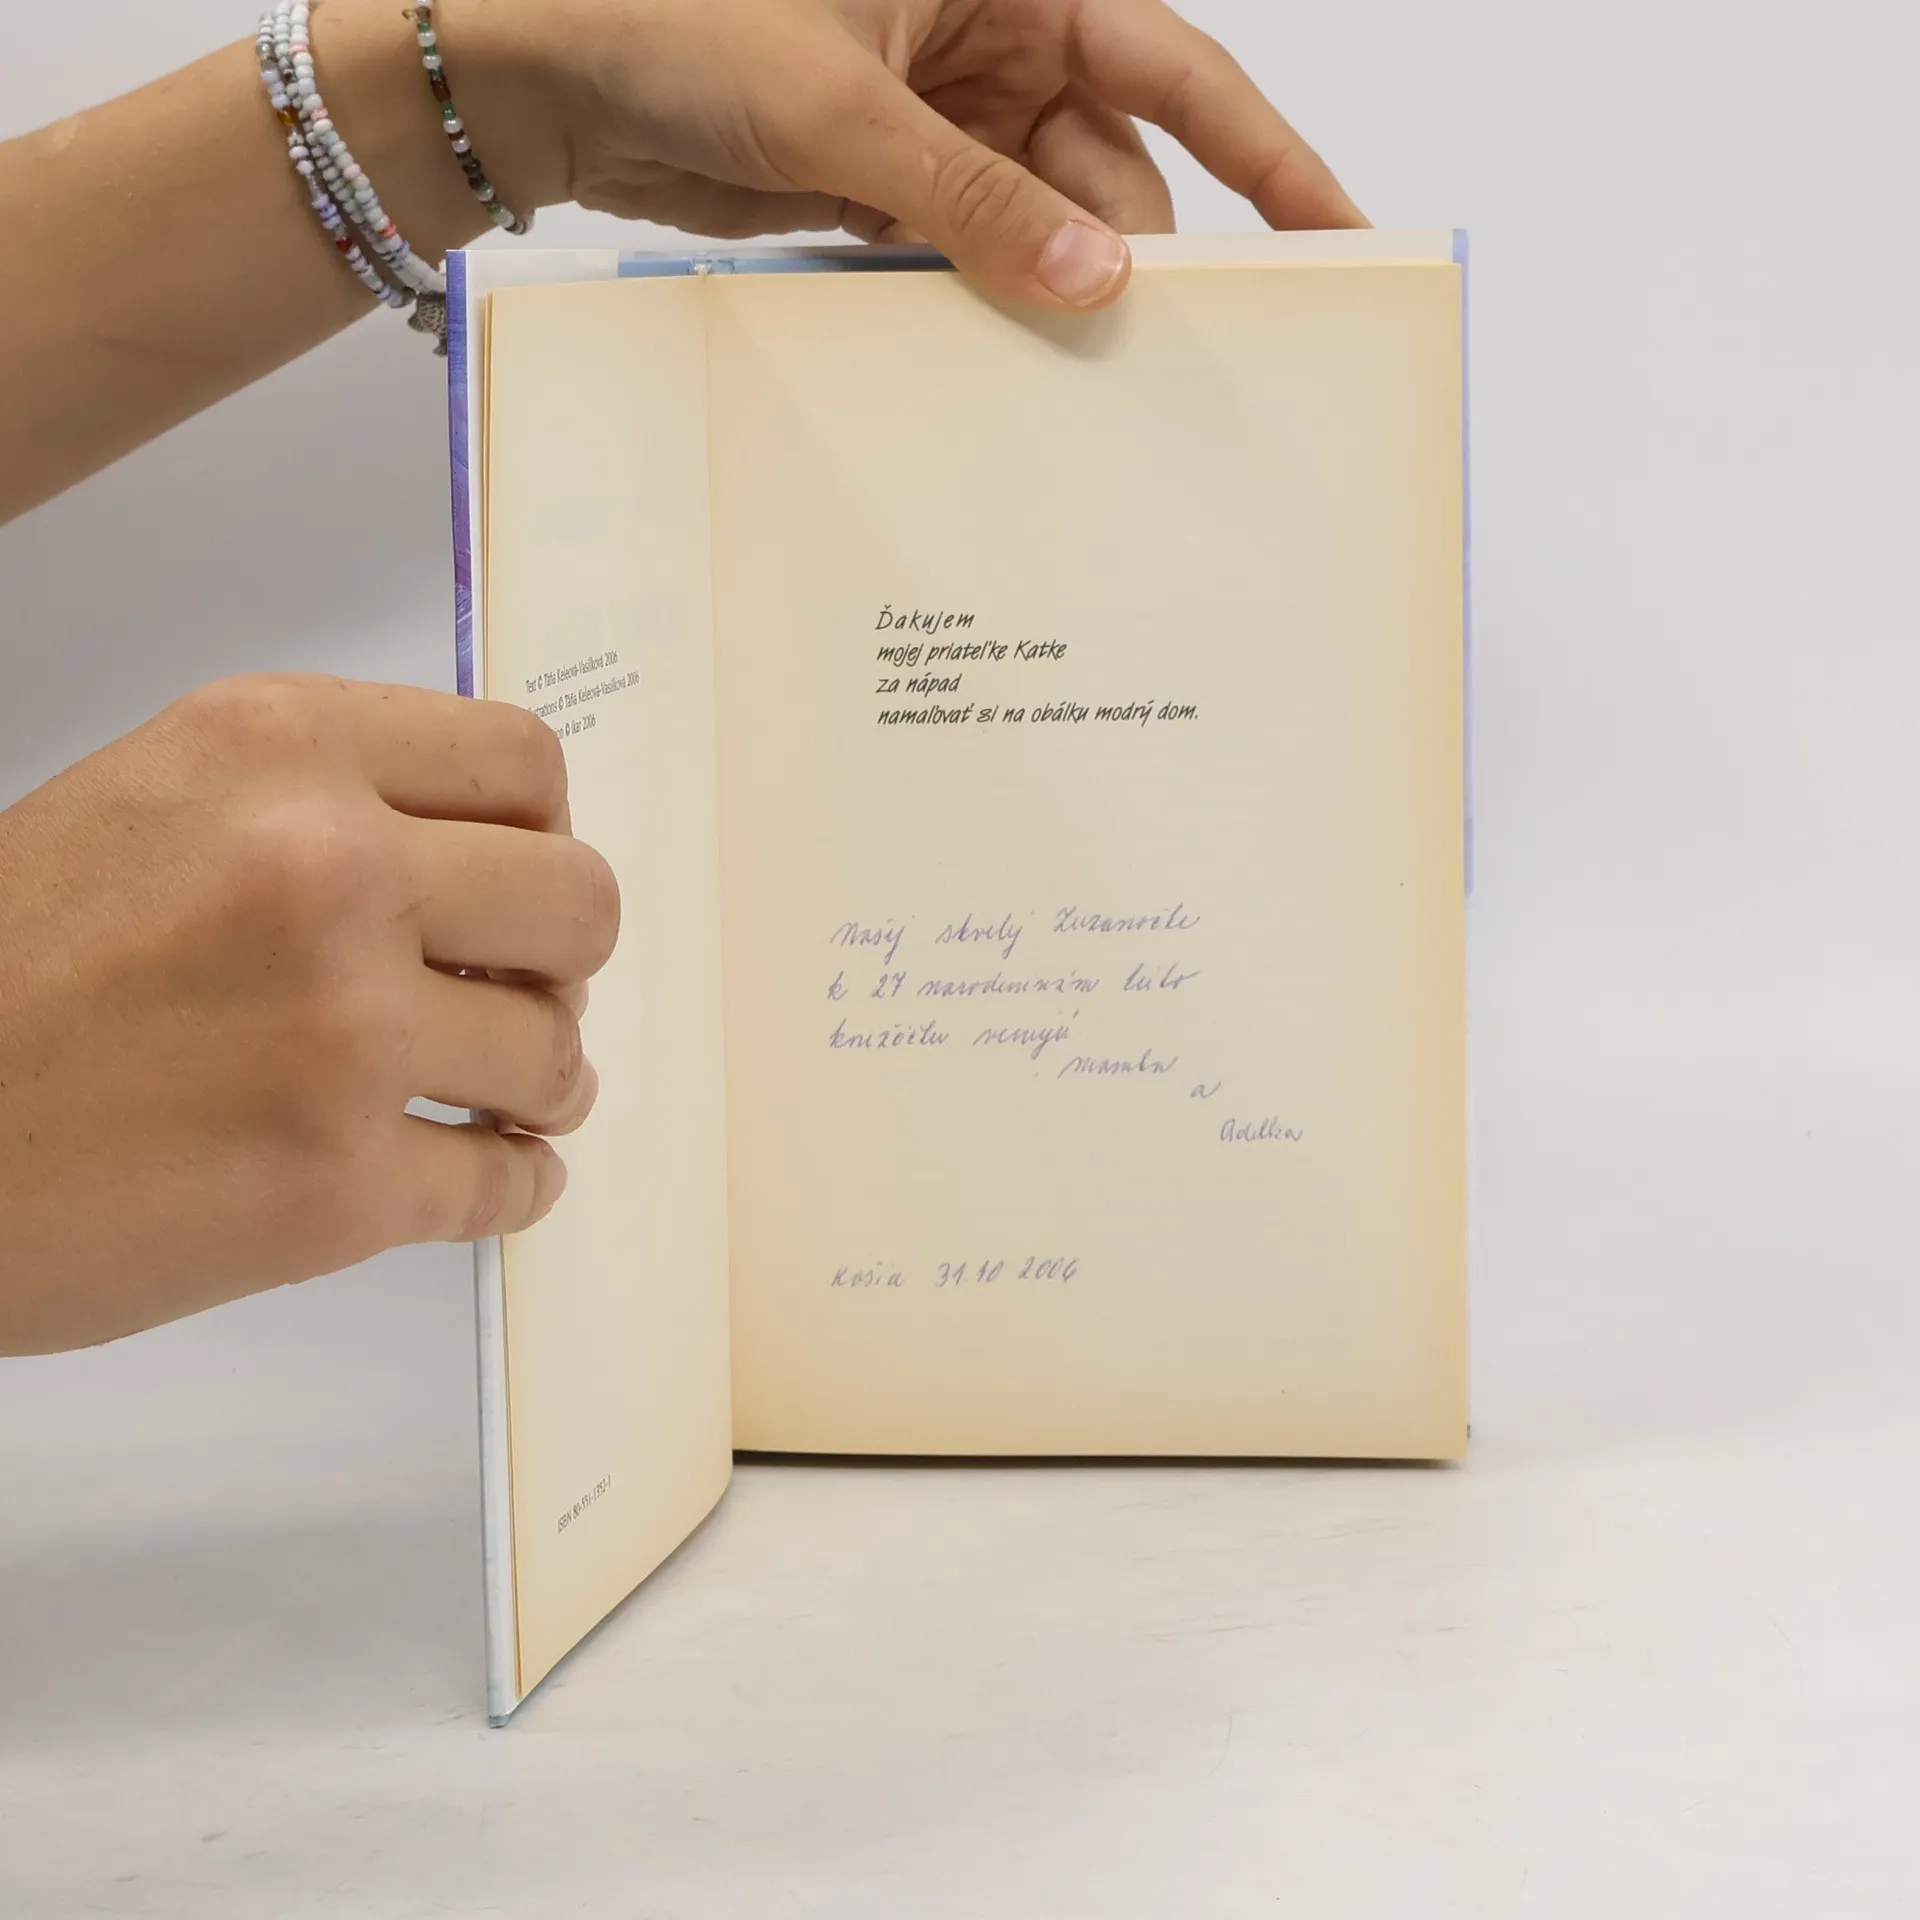 Text © Táňa Keleová-Vasilková 2006
Illustrations © Táňa Keleová-Vasilková 2006
© Ikar 2006
ISBN 80-551-1352-1
Ďakujem
mojej priateľke Katke
za nápad
namaľovať si na obálku modrý dom.
Našej skvelej Zuzanočke
k 27 narodeninám túto
knižočku venujú
mamka
a
Adelka
31.10 2006